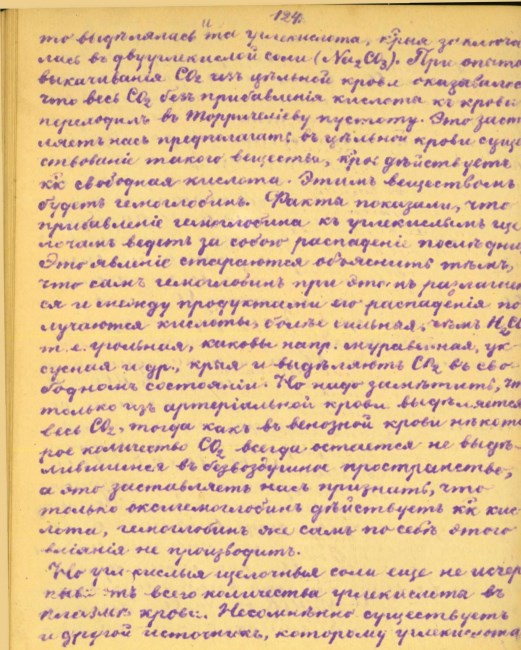 124.
то выдѣлялась та углекислота, крыя заключа
лась въ двууглекислой соли (Na₂CO₃). При опыта
выкачиванія CO₂ изъ цѣльной крови оказывалос
что весь CO₂ безъ прибавленія кислота къ крови
переходилъ въ Торричелеву пустоту. Это заст
ляетъ насъ предполагать въ цѣльной крови суще
ствованіе такого вещества, крое дѣйствуетъ
кк свободная кислота. Этимъ веществомъ
будетъ гемоглобинъ. Факта показали, что
прибавленіе гемоглобина къ углекислымъ ще
лочамъ ведетъ за собою распаденіе послѣдни
Это явленіе стараются объяснить тѣмъ,
что самъ гемоглобинъ при этомъ разлагает
ся и между продуктами его распаденія по
лучаются кислоты, болѣе сильная, чѣмъ H₂C
т.е. угольная, каковы напр. муравьиная, ук
сусная и др., крыя и выдѣляютъ CO₂ въ сво
бодномъ состояніи. Но надо замѣтить, чт
только изъ артеріальной крови выдѣляется
весь CO₂, тогда какъ въ венозной крови нѣкото
рое количество CO₂ всегда остается не выдѣ
лившимся въ безвоздушное пространство,
а это заставляетъ насъ признать, что
только оксигемоглобинъ дѣйствуетъ кк кис
лота, гемоглобинъ же самъ по себѣ этого
вліянія не производитъ.
Но углекислыя щелочныя соли еще не исчер
пываютъ всего количества углекислота въ
плазмѣ крови. Несомнѣнно существуетъ
и другой источникъ, которому углекислота